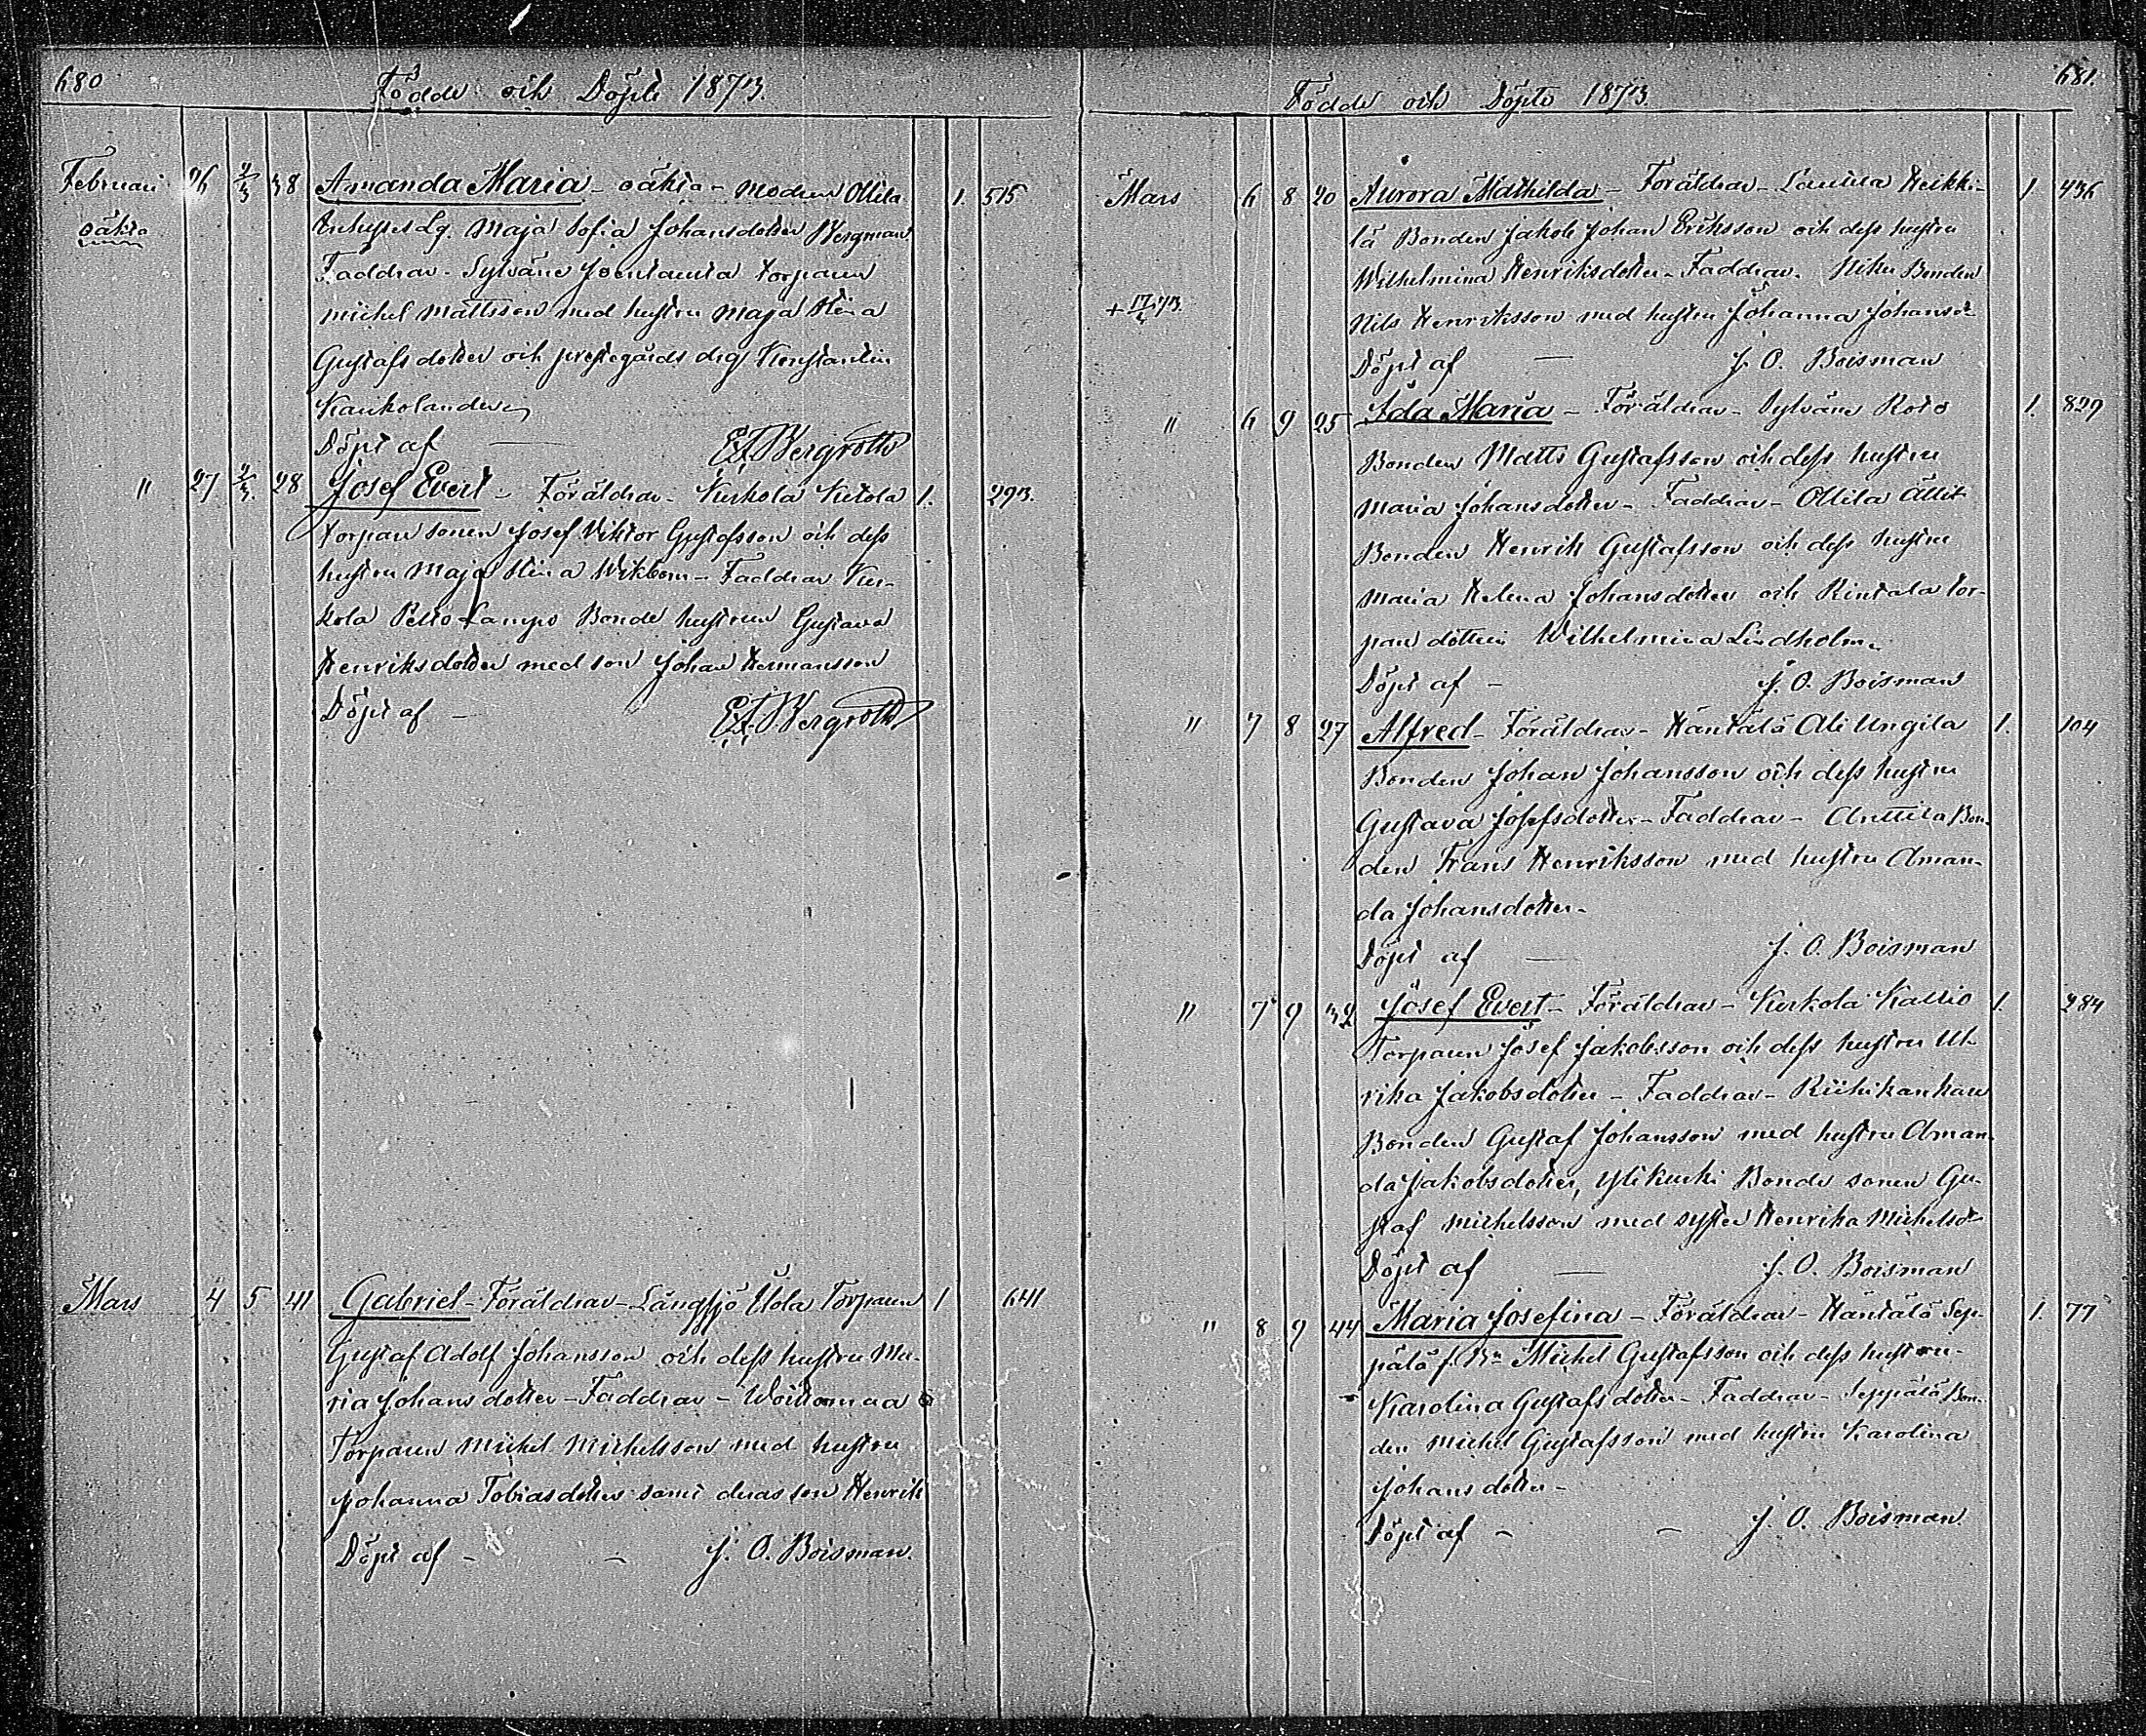 680
Födde och Döpte 1873.
Februari 26 2/3 38 Amanda Maria – oäkta – modren Ollila 1. 515
oäkta
Inhyses Lg. Maja Sofia Johansdotter Bergman
Faddrar – Sylväne Torparen
Michel Mattsson med hustru Maja Stina
Gustafsdotter och prestegårds drg Konstantin
Kaukolander
Döpt af — E.F. Bergroth
" 27 2/3. 28 Josef Evert – Föräldrar – Kurkola Ketola 1. 293.
Torpare sonen Josef Viktor Gustafsson och dess
hustru Maja Stina Wikbom – Faddrar Kur-
kola Pelto Lampo Bonde hustrun Gustava
Henriksdotter med son Johan Hermansson
Döpt af – E.F. Bergroth
Mars 4 5 41 Gabriel – Föräldrar – Långsjö Torparen 1 641
Gustaf Adolf Johansson och dess hustru Ma-
ria Johansdotter – Faddrar – Woittomaa
Torparen Michel Michelsson med hustru
Johanna Tobiasdotter samt deras son Henrik
Döpt af – – J. O. Boisman.
681.
Födde och Döpte 1873.
Mars 6 8 20 Aurora Mathilda – Föräldrar – Laurila Heikki- 1. 436
lä Bonden Jakob Johan Eriksson och dess hustru
Wilhelmina Henriksdotter – Faddrar. Niku Bonden
+ 17/4 73.
Nils Henriksson med hustru Johanna Johansdr
Döpt af — J. O. Boisman
" 6 9 25 Ada Maria – Föräldrar – Sylväne Roto 1. 829
Bonden Matts Gustafsson och dess hustru
Maria Johansdotter – Faddrar – Ollila
Bonden Henrik Gustafsson och dess hustru
Maria Helena Johansdotter och Rintala tor-
pare dottren Wilhelmina Lindholm.
Döpt af – J. O. Boisman
" 7 8 27 Alfred – Föräldrar – Häntälä Ali Ungila 1. 104
Bonden Johan Johansson och dess hustru
Gustava Josefsdotter – Faddrar – Anttila Bon-
den Frans Henriksson med hustru Aman-
da Johansdotter –
Döpt af — J. O. Boisman
" 7 9 32 Josef Evert – Föräldrar – Kurkola Kallio 1. 284
Torparen Josef Jakobsson och dess hustru Ul-
rika Jakobsdotter – Faddrar – Riihikankare
Bonden Gustaf Johansson med hustru Aman-
da Jakobsdotter, Ylikurki Bonde sonen Gu-
staf Michelsson med syster Henrika Michelsdr
Döpt af — J. O. Boisman
" 8 9 44 Maria Josefina – Föräldrar – Häntälä Sep- 1. 77
pälä f. Bn Michel Gustafsson och dess hustru –
Karolina Gustafsdotter – Faddrar – Seppälä Bon-
den Michel Gustafsson med hustru Karolina
Johansdotter –
Döpt af – – J. O. Boisman.